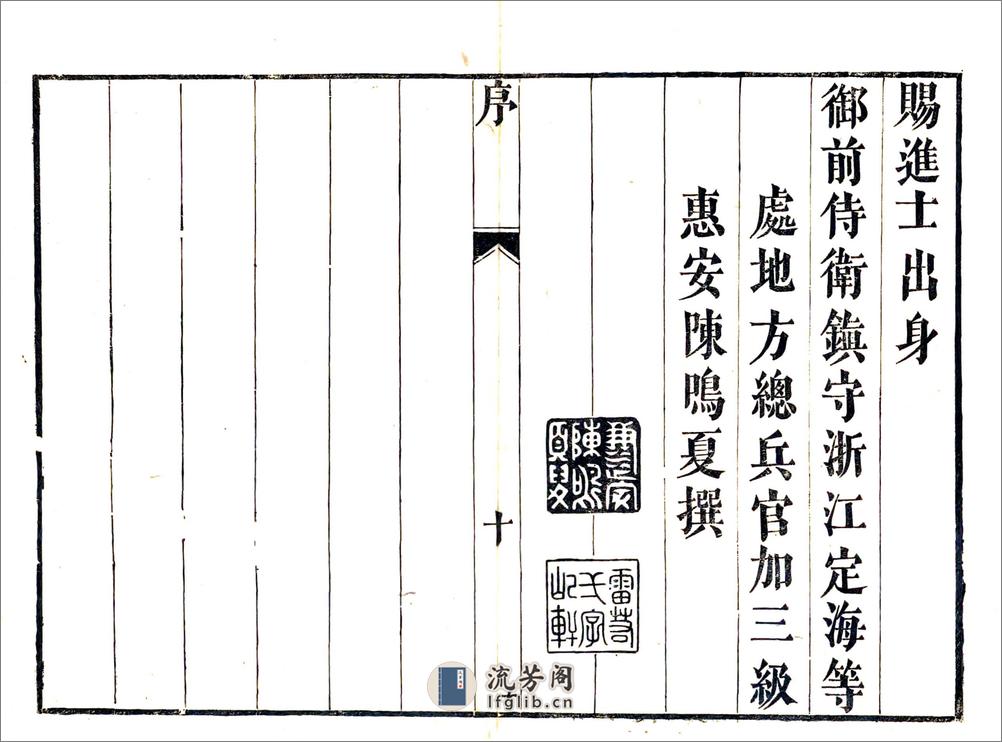 賜進士出身
御前侍衛鎮守浙江定海等
處地方總兵官加三級
惠安陳鳴夏撰
序
十
流芳阁
lfglib.cn